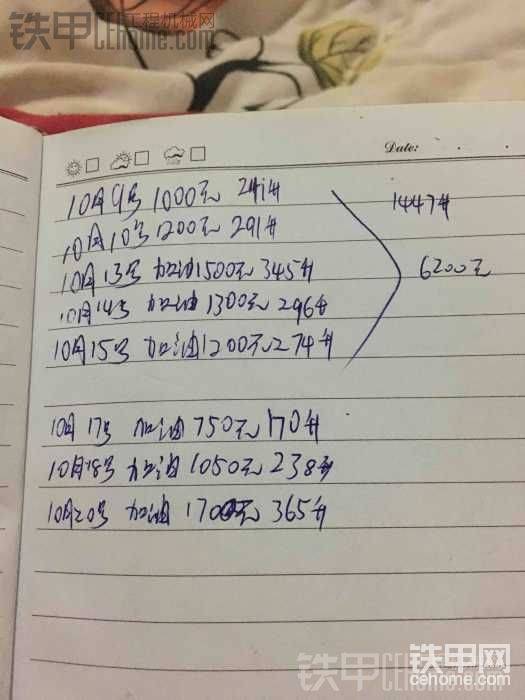 铁甲工程机械网
CEhome.com
Date:
10月9号 1000元 241升
14478升
10月10号 1200元 291升
10月13号 加油1500元 345升
6200元
10月14号 加油 1300元 296升
10月15号 加油1200元 274升
10月17号 加油 750元 170升
10月18号 加油 1050元 238升
10月20号 加油 1700元 365升
铁甲 CEhome.com
铁甲网
cehome.com